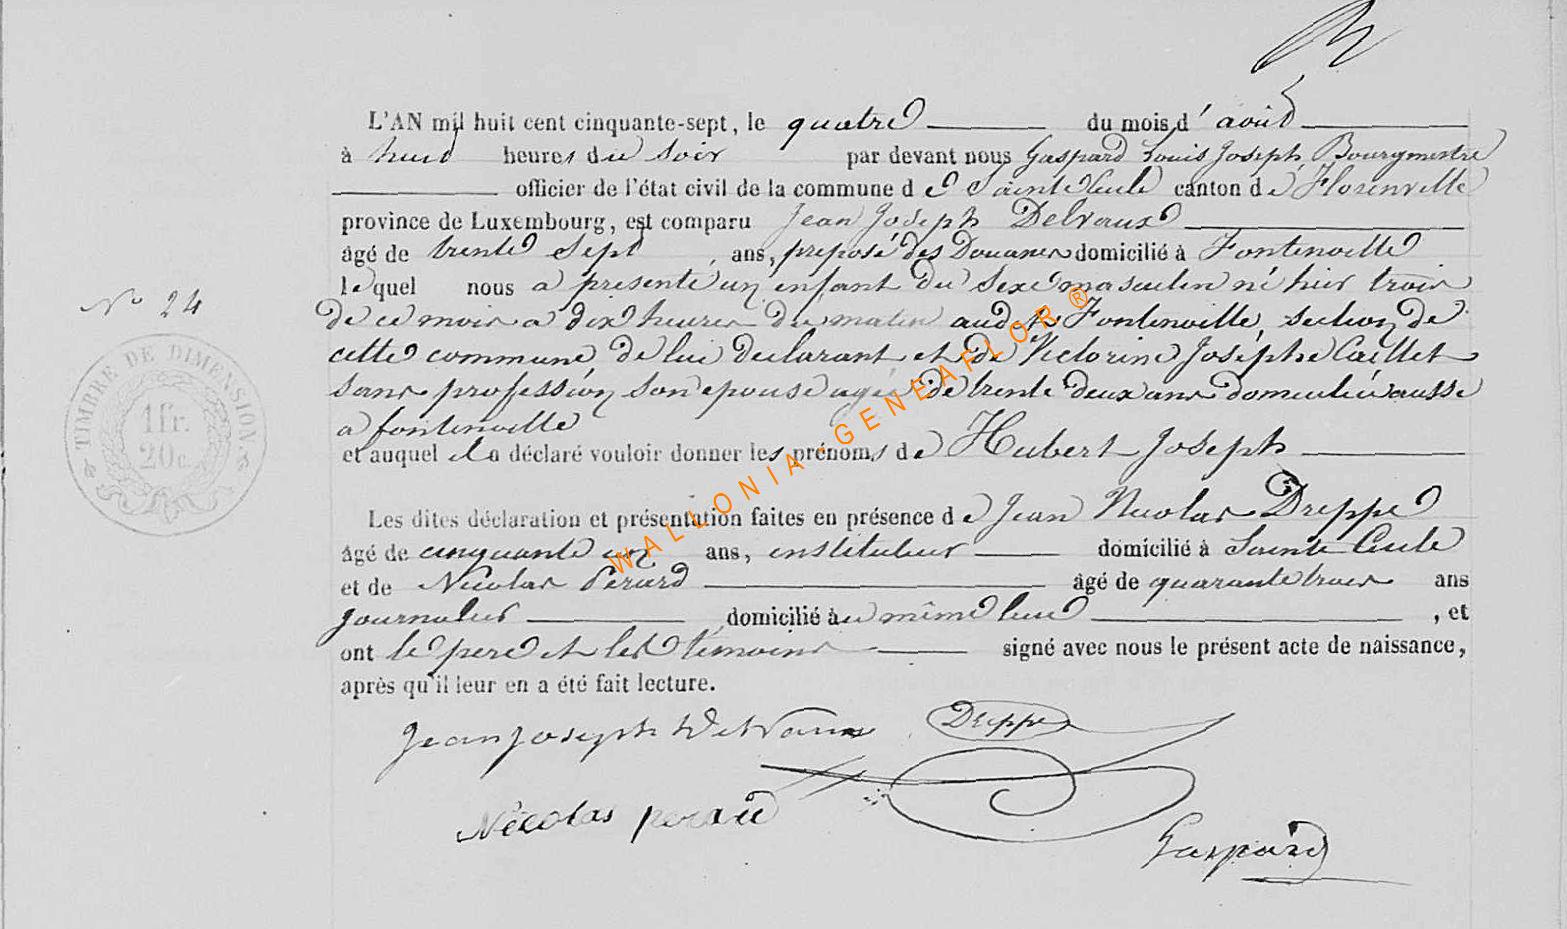 L'AN mil huit cent cinquante-sept, le quatre du mois d'août
à huit heures du soir par devant nous Gaspard Louis Joseph, Bourgmestre
officier de l'état civil de la commune de Sainte Cecile canton de Florenville
province de Luxembourg, est comparu Jean Joseph Delvaux
âgé de trente sept ans, préposé des Douanes domicilié à Fontenoille
lequel nous a présenté un enfant du Sexe masculin né hier trois
de ce mois a dix heures du matin aud. Fontenoille, section de
cette commune de lui declarant et de Victorine Josephe Caillet
sans profession son epouse agée de trente deux ans domiciliée aussi
a fontenoille
et auquel il a déclaré vouloir donner les prénoms de Hubert Joseph
Les dites déclaration et présentation faites en présence de Jean Nicolas Dreppe
âgé de cinquante un ans, instituteur domicilié à Sainte Cecile
et de Nicolas Perard âgé de quarante trois ans
journalier domicilié au même lieu, et
ont le père et les témoins signé avec nous le présent acte de naissance,
après qu'il leur en a été fait lecture.
Jean joseph Delvaux Dreppe
Nicolas perard
Gaspard
N° 24
TIMBRE DE DIMENSION
1 fr.
20 c.
WALLONIA-GENEAFLOR®